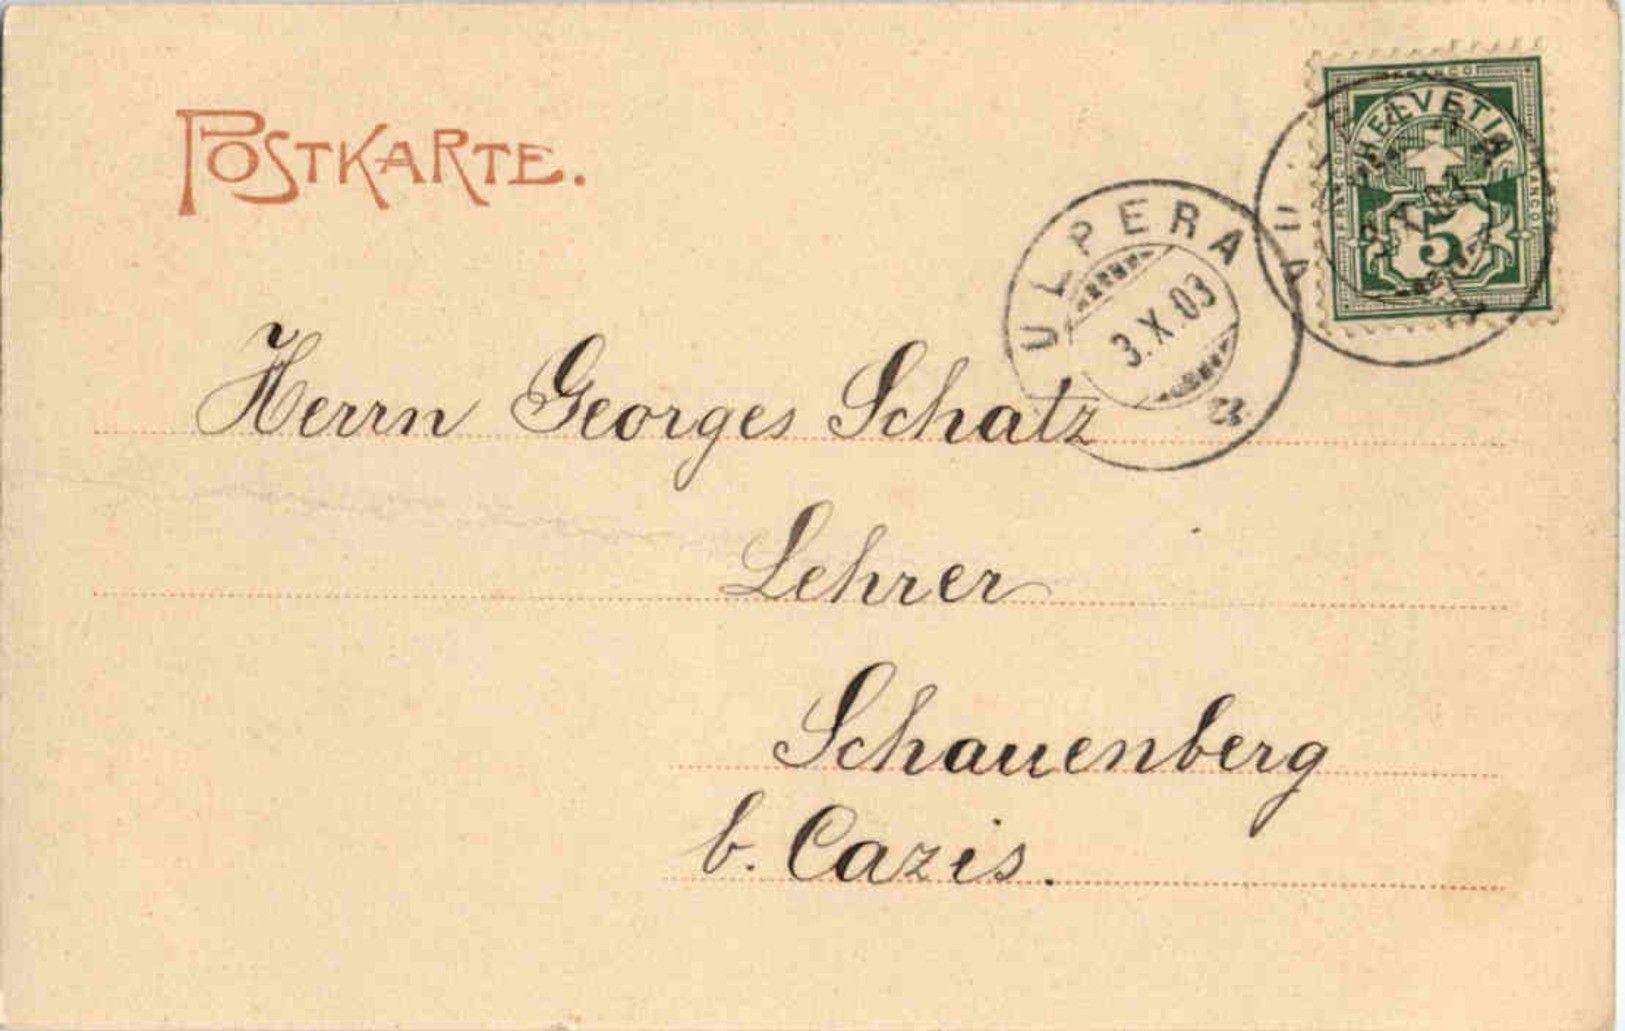 POSTKARTE.
HELVETIA
FRANCO
5
VULPERA
3.X.03
Herrn Georges Schatz
Lehrer
Schauenberg
b. Cazis.